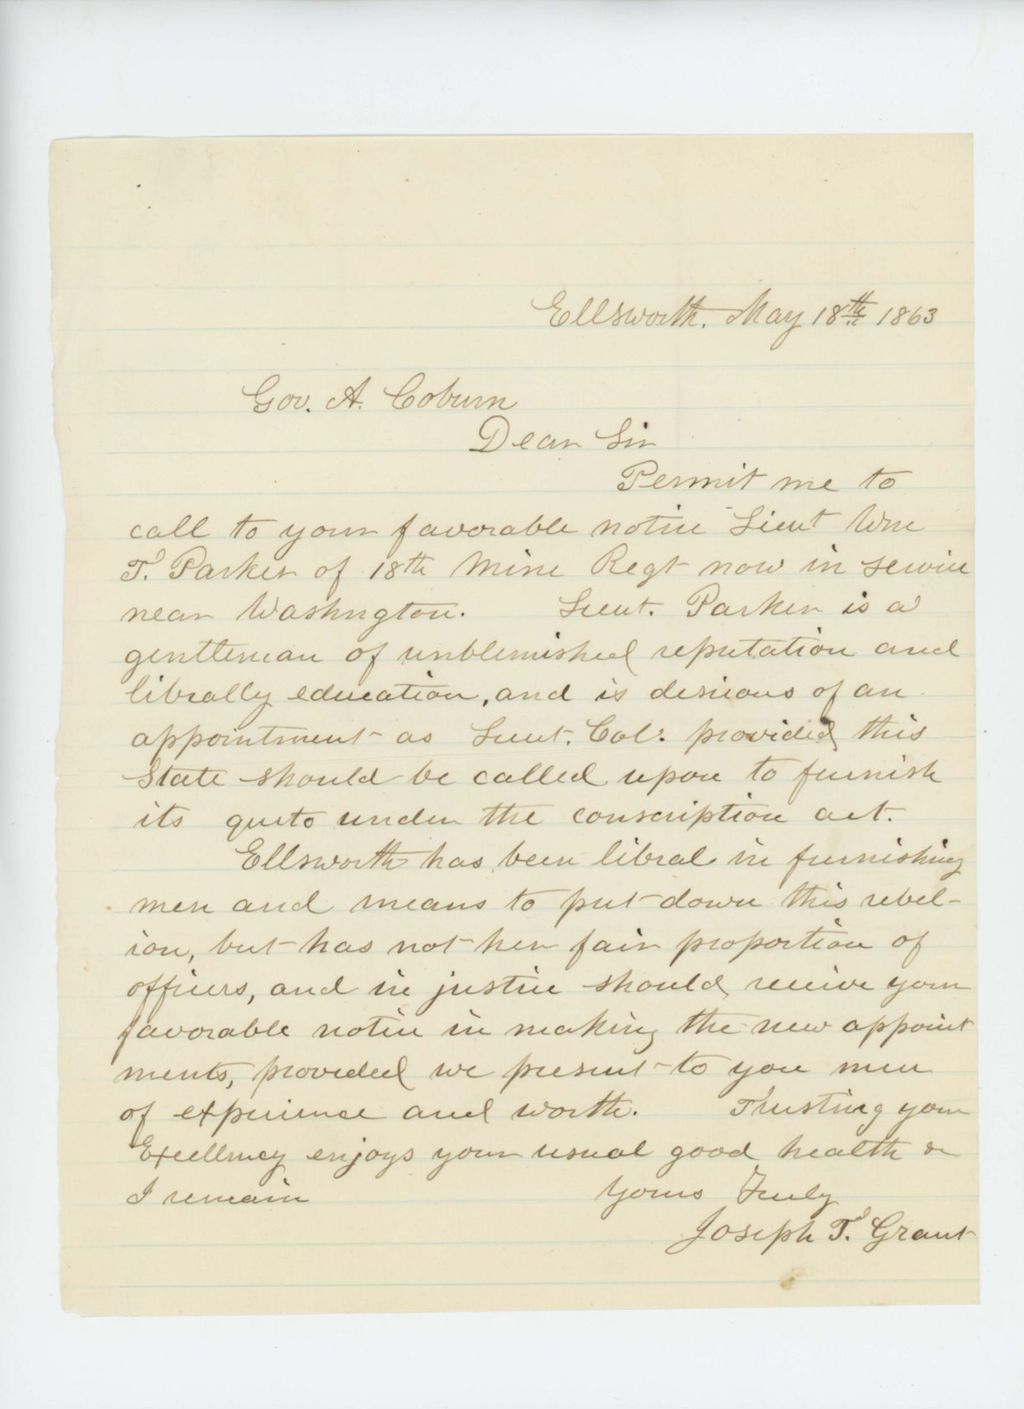 Ellsworth. May 18th 1863
Gov. A. Coburn
Dear Sir
Permit me to
call to your favorable notice Lieut Wm
T. Parker of 18th Mine Regt now in service
near Washngton. Lieut. Parker is a
gentleman of unblemished reputation and
librally education, and is desirous of an
appointment as Lieut. Col. provided this
State should be called upon to furnish
its quoto under the conscription act.
Ellsworth has been libral in furnishing
men and means to put down this rebel-
ion, but has not her fair proportion of
officers, and in justice should receive your
favorable notice in making the new appoint
ments, provided we present to you men
of experience and worth. Trusting your
Excellency enjoys your usual good health &
I remain Yours Truly
Joseph T. Grant